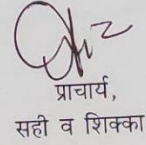 प्राचार्य,
सही व शिक्का